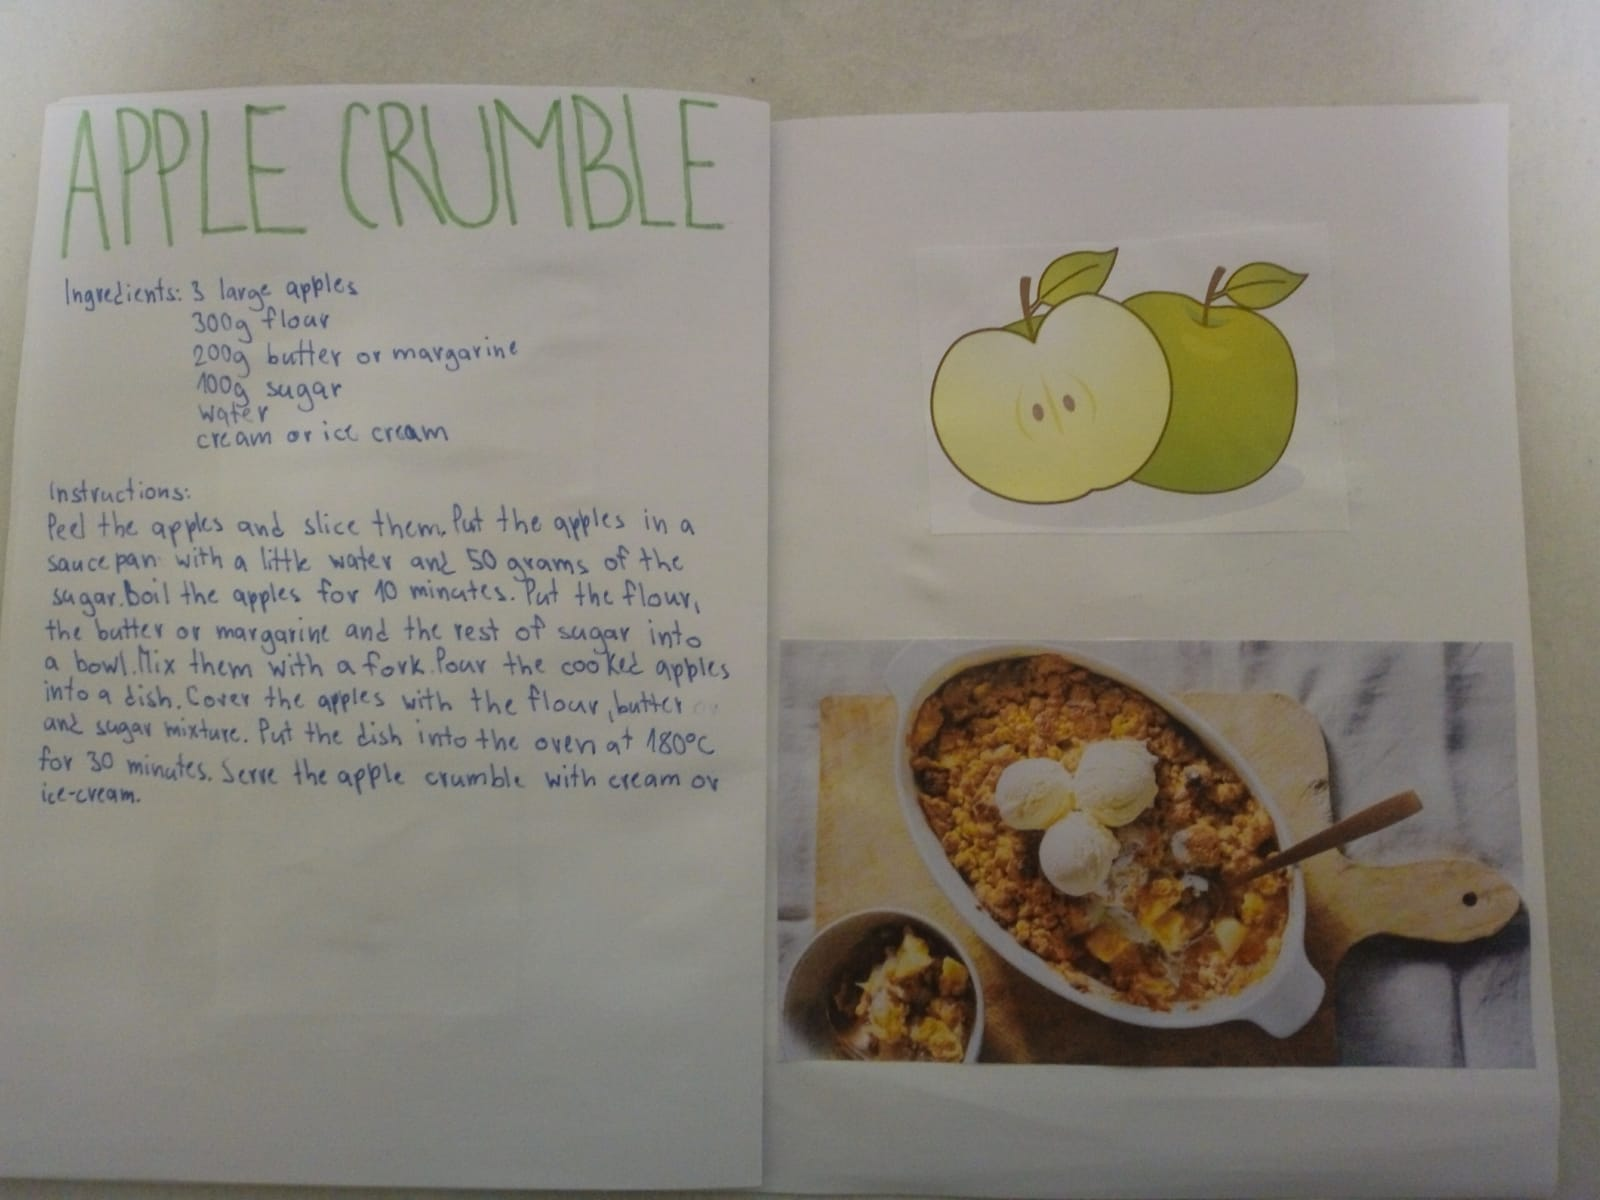 APPLE CRUMBLE
Ingredients: 3 large apples
300g flour
200g butter or margarine
100g sugar
water
cream or ice cream
Instructions:
Peel the apples and slice them. Put the apples in a
saucepan with a little water and 50 grams of the
sugar. Boil the apples for 10 minutes. Put the flour,
the butter or margarine and the rest of sugar into
a bowl. Mix them with a fork. Pour the cooked apples
into a dish. Cover the apples with the flour, butter or
and sugar mixture. Put the dish into the oven at 180°C
for 30 minutes. Serve the apple crumble with cream or
ice-cream.